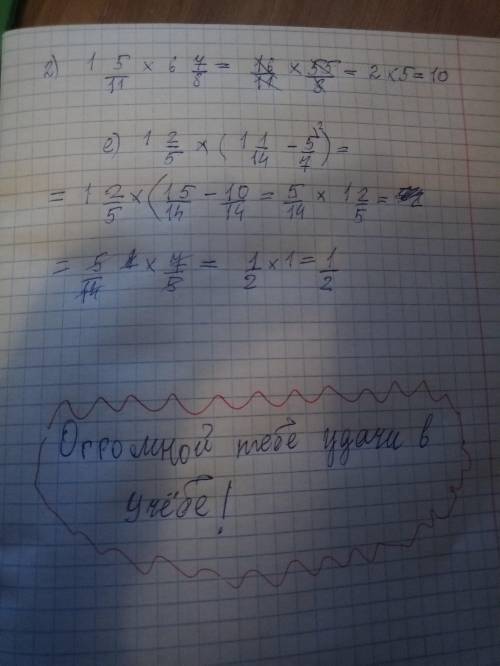 г) 1 5/11 × 6 7/8 = 16/11 × 55/8 = 2 × 5 = 10
е) 1 2/5 × (1 1/14 - 5/7 ²) =
= 1 2/5 × (15/14 - 10/14 = 5/14 × 1 2/5 =
= 5/14 × 7/5 = 1/2 × 1 = 1/2
Огромной тебе удачи в
учёбе!